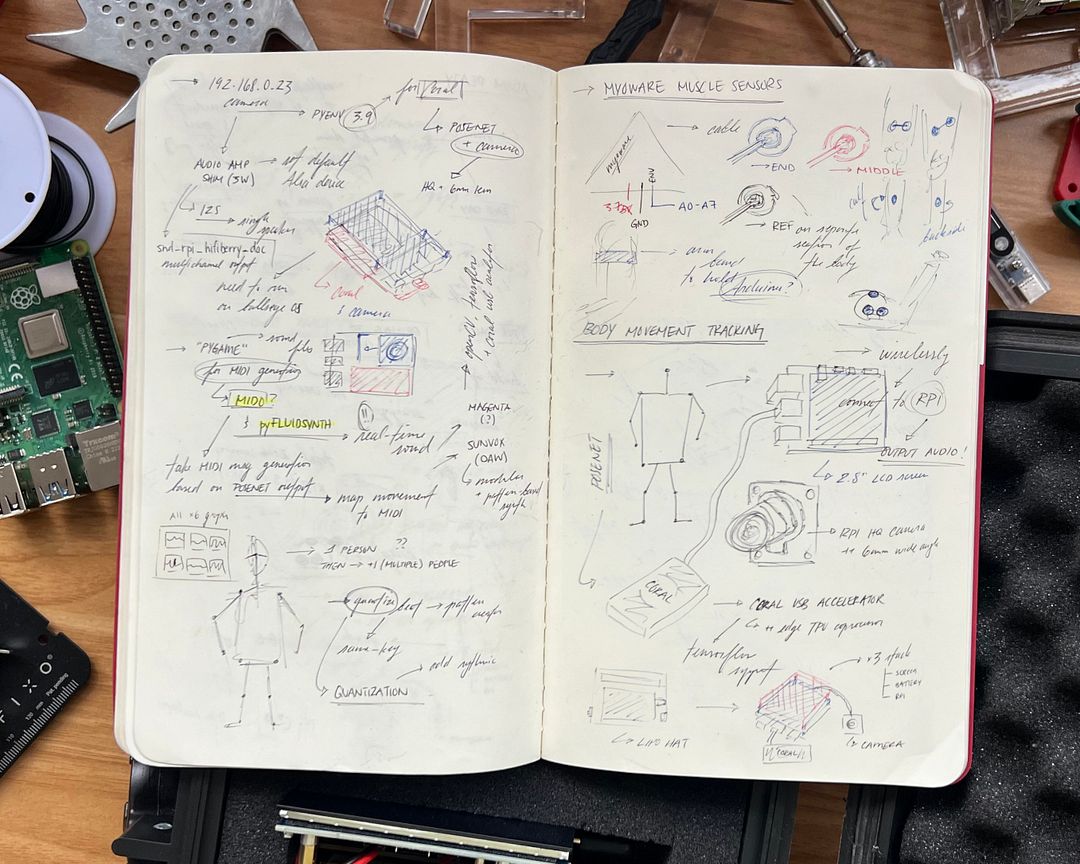 → 192.168.0.23
camera → PYENV 3.9 → for Coral
↳ POSENET
+ camera
HQ + 6mm lens
AUDIO AMP → not default
SHIM (3W) Alsa device
I2S → single speaker
snd_rpi_hifiberry_dac
multichannel output
need to run
on bullseye OS
↳ coral
& camera
→ openCV, tensorflow
+ coral usb
→ "PYGAME" → sound files
for MIDI generation
↳ MIDO?
& pyFLUIDSYNTH → real-time
sound
!!
MAGENTA
(?)
SUNVOX
(DAW)
↳ modular
+ pattern-based
synth
take MIDI msg generation
based on POSENET output → map movement
to MIDI
All x6 graphs
→ 1 PERSON ??
THEN → +1 (MULTIPLE) PEOPLE
→ quantize beat → pattern
same-key
↳ QUANTIZATION → odd rythmic
→ MYOWARE MUSCLE SENSORS
myoware
→ cable
→ END
→ MIDDLE
ENV
GND
A0-A7
→ REF on separate
section of
the body
backside
→ arm
band
to hold Arduino?
BODY MOVEMENT TRACKING
→ wirelessly
connect to RPI
OUTPUT AUDIO!
↳ 2.8" LCD screen
POSENET
→ RPI HQ CAMERA
++ 6mm wide angle
CORAL
→ CORAL USB ACCELERATOR
↳ ++ edge TPU coprocessor
tensorflow
support
→ x3 stack
SCREEN
BATTERY
RPI
↳ LIPO HAT
CORAL
↳ CAMERA